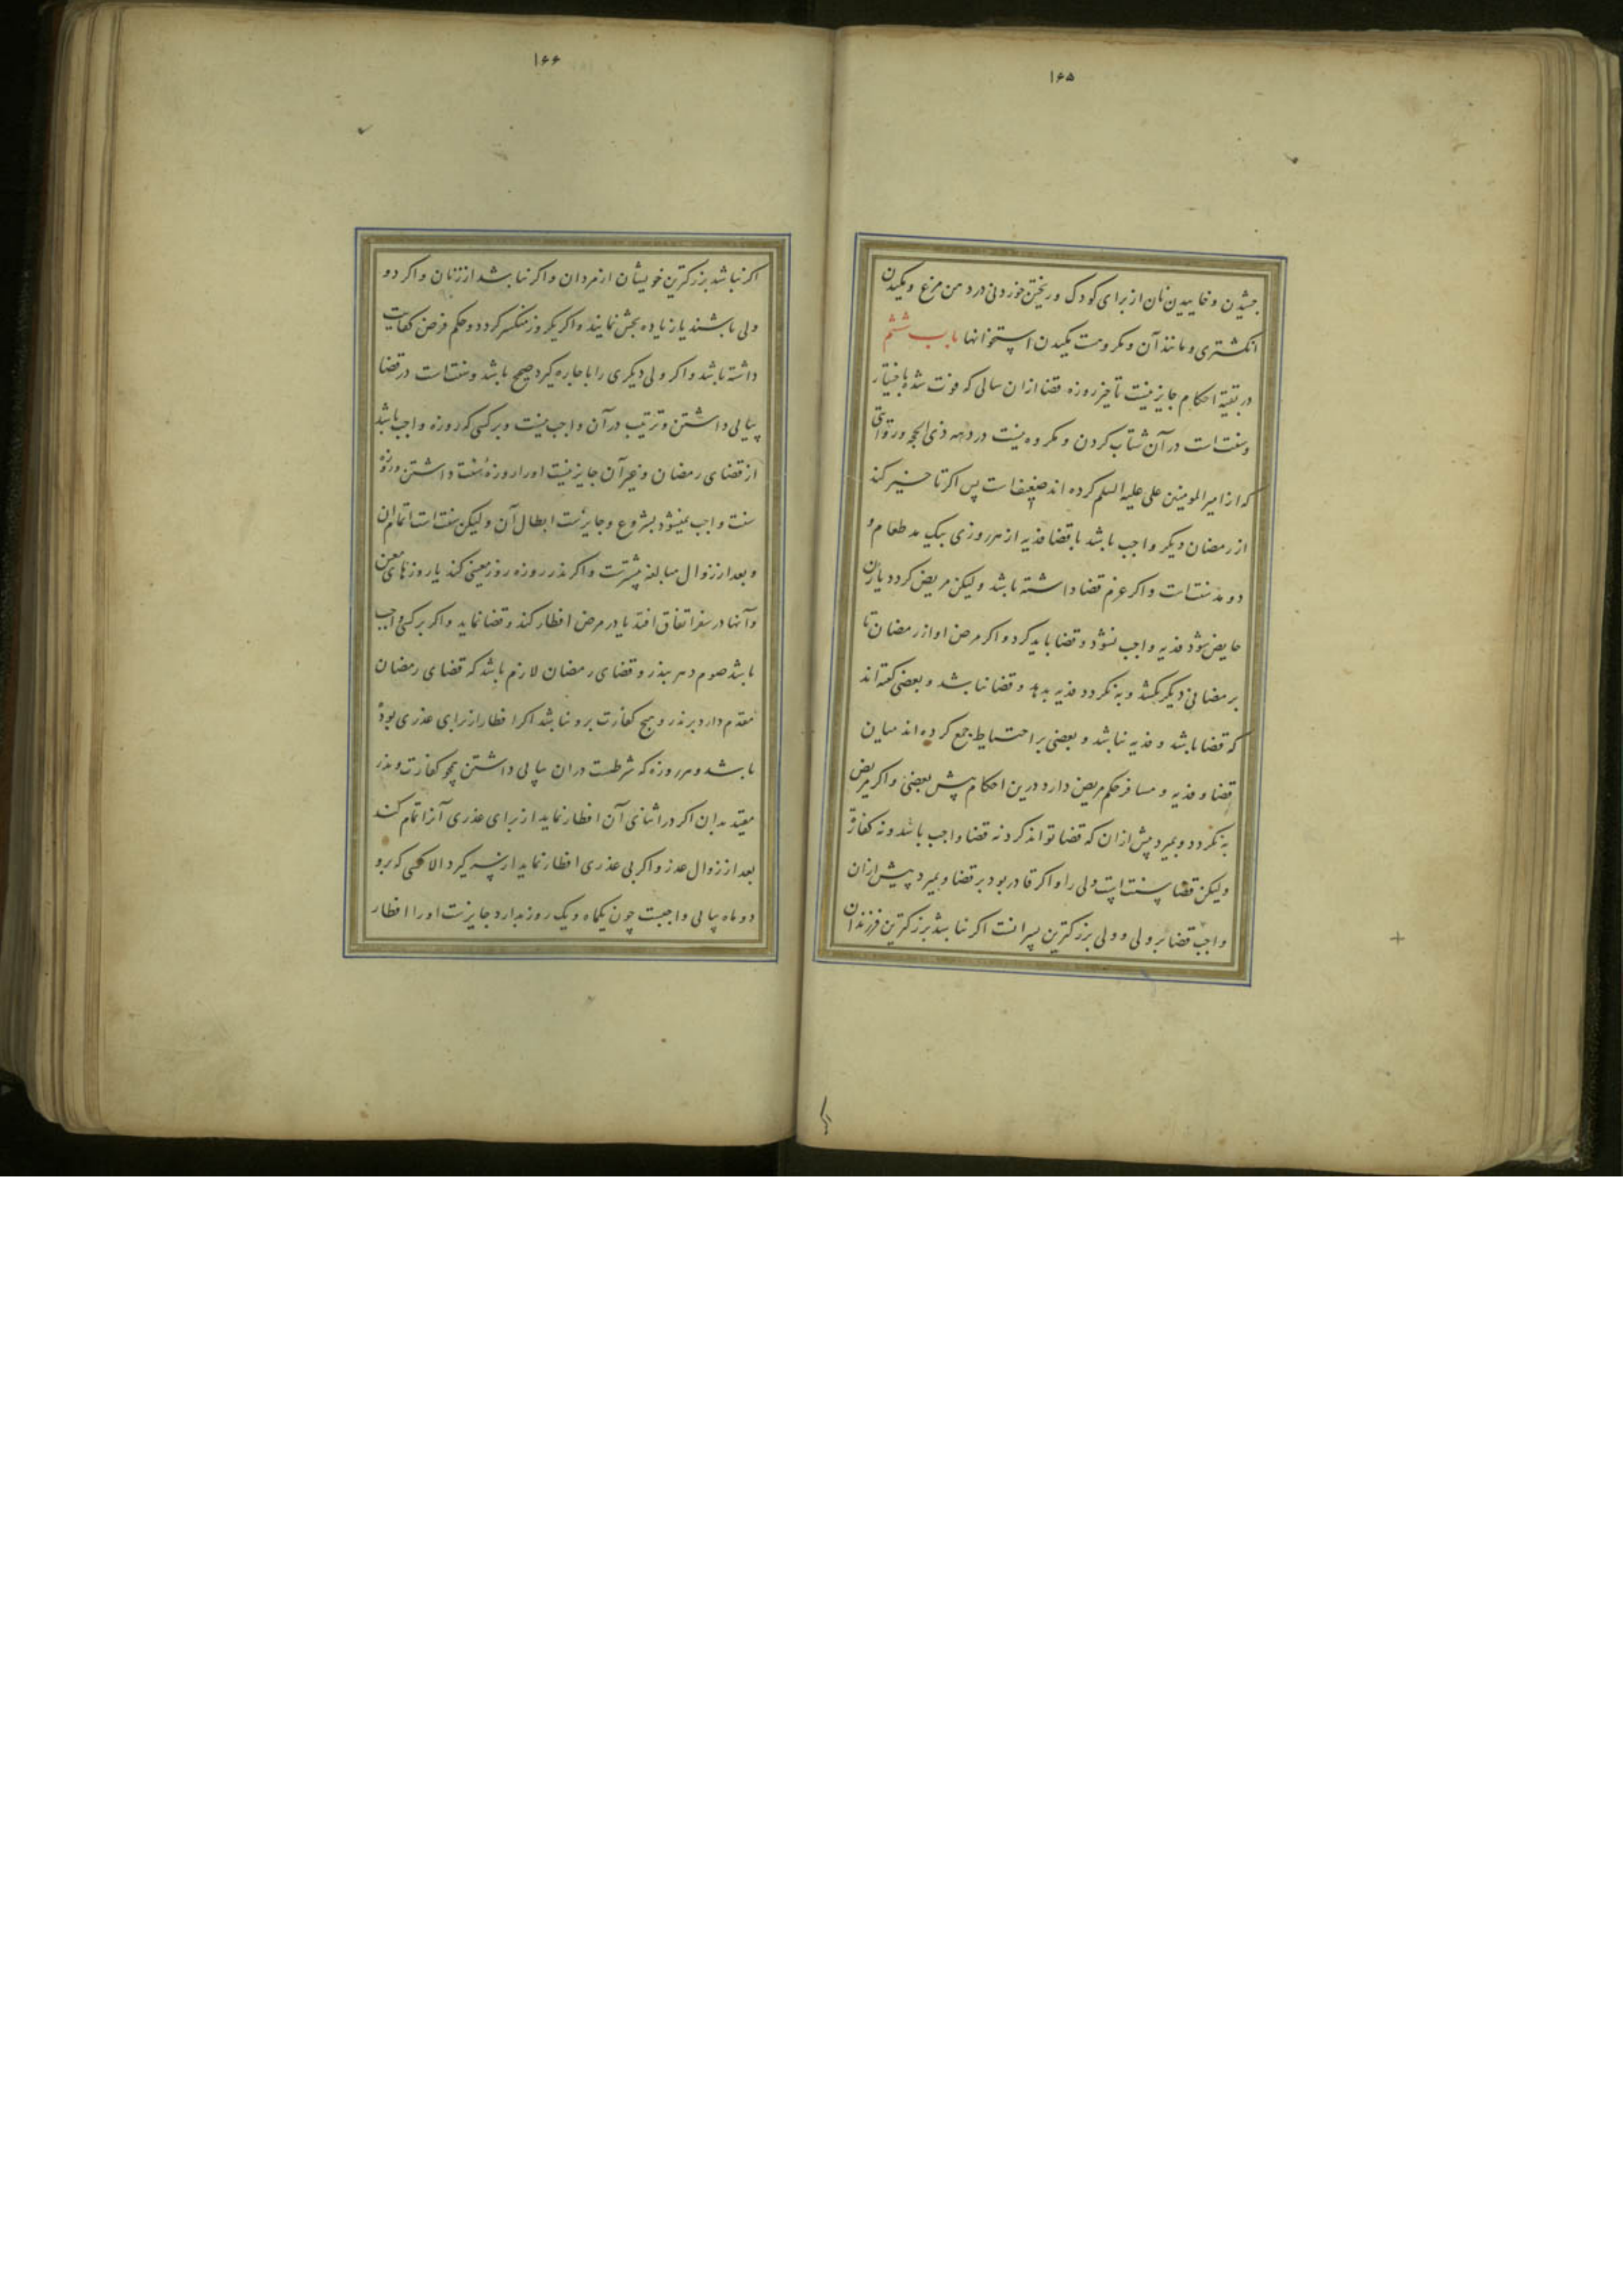 ۱۶۵
چشیدن و خاییدن نان از برای کودک و ریختن خوردنی در دهن مرغ و مکیدن
انکشتری و مانند آن و مکروهست مکیدن استخوانها باب ششم
در بقیة احکام جایز نیست تأخیر روزه قضا ازان سالی که فوت شده باختیار
و سنت است در آن شتاب کردن و مکروه نیست در دهه ذی الحجه و روایتی
که از امیر المومنین علی علیه السلم کرده اند ضعیف است پس اکر تاخیر کند
از رمضان دیکر واجب باشد با قضا فدیه از هر روزی بیک مد طعام و
دو مد سنت است و اکر عزم قضا داشته باشد ولیکن مریض کردد یا زن
حایض شود فدیه واجب نشود و قضا باید کرد و اکر مرض او از رمضان تا
برمضانی دیکر بکشد و به نکردد فدیه بدهد و قضا نباشد و بعضی کفته اند
که قضا باشد و فدیه نباشد و بعضی بر احتیاط جمع کرده اند میان
قضا و فدیه و مسافر حکم مریض دارد درین احکام پیش بعضی و اکر مریض
به نکردد و بمیرد پیش ازان که قضا تواند کرد نه قضا واجب باشد و نه کفارة
ولیکن قضا سنت است ولی را و اکر قادر بود بر قضا و بمیرد پیش ازان
واجب قضا بر ولی و ولی بزرکترین پسرانست اکر نباشد بزرکترین فرزندان
۱۶۶
اکر نباشد بزرکترین خویشان از مردان و اکر نباشد از زنان و اکر دو
ولی باشند یا زیاده بخش نمایند و اکر یکروز منکسر کردد حکم فرض کفایت
داشته باشد و اکر ولی دیکری را باجاره کیرد صحیح باشد و سنت است در قضا
پیاپی داشتن و ترتیب در آن واجب نیست و بر کسی که روزه واجب باشد
از قضای رمضان و غیر آن جایز نیست او را روزهٔ سنت داشتن و روزهٔ
سنت واجب نمیشود بشروع و جایزست ابطال آن ولیکن سنت است اتمام ان
و بعد از زوال مبالغه بیشترست و اکر نذر روزه روز معینی کند یا روزهای معین
و آنها در سفر اتفاق افتد یا در مرض افطار کند و قضا نماید و اکر بر کسی واجب
باشد صوم دهر بنذر و قضای رمضان لازم باشد که قضای رمضان
مقدم دارد بر نذر و هیچ کفارت برو نباشد اکر افطار از برای عذری بوده
باشد و هر روزه که شرطست دران پیاپی داشتن همچو کفارت و نذر
مقید بدان اکر در اثنای آن افطار نماید از برای عذری آنرا تمام کند
بعد از زوال عذر و اکر بی عذری افطار نماید از سر کیرد الا کسی که برو
دو ماه پیاپی واجبست چون یکماه و یک روز بدارد جایزست او را افطار